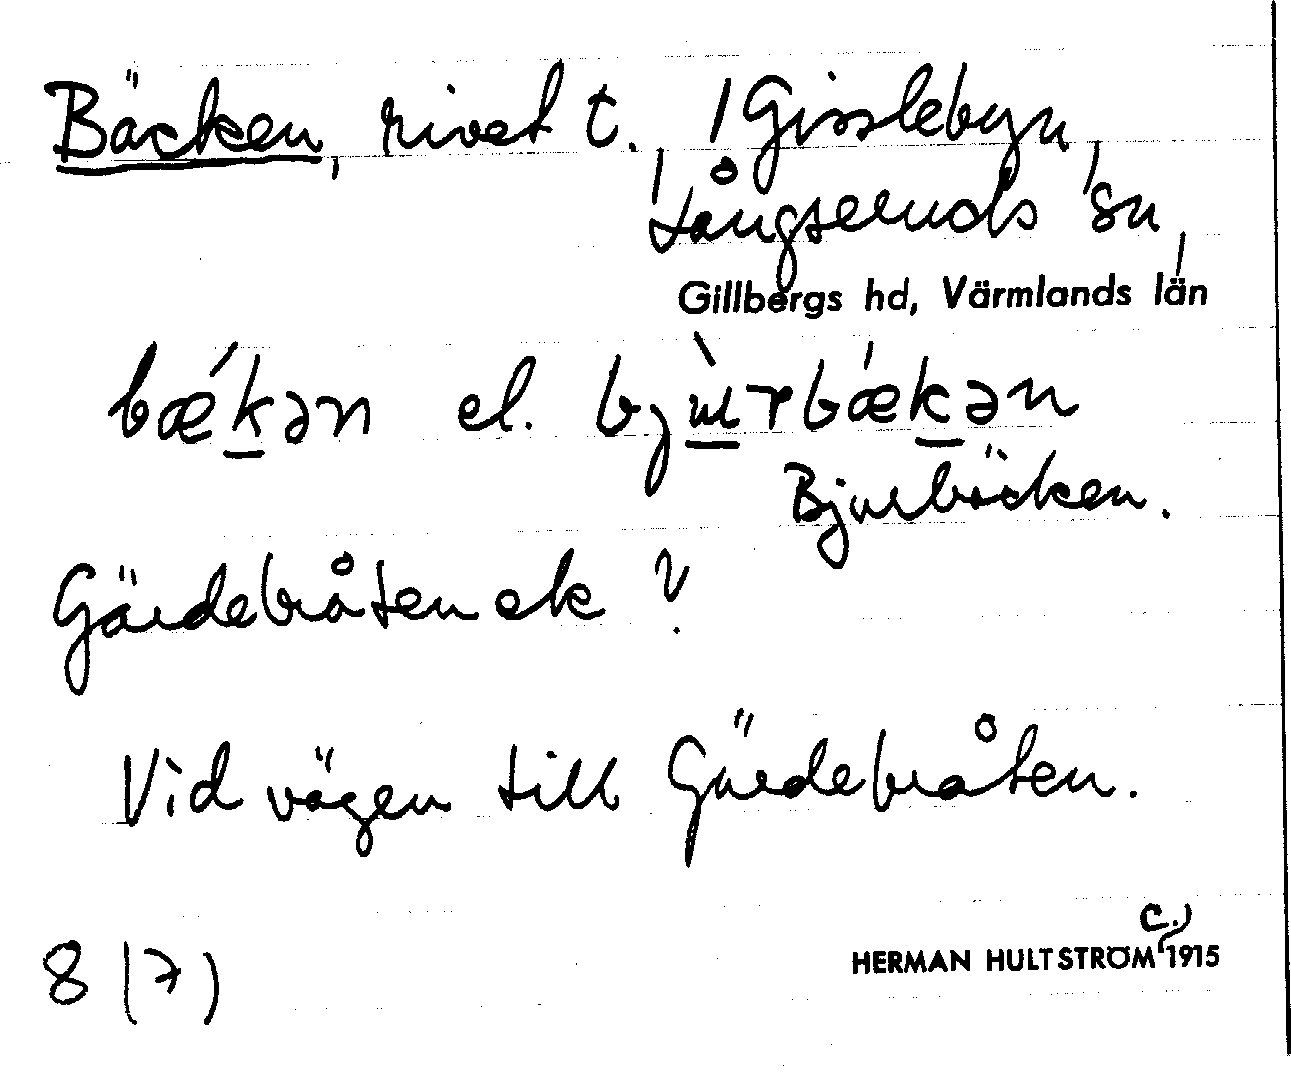 Bäcken, rivet t. | Gisslebyn,
Långseruds sn,
Gillbergs hd, Värmlands län
bǽkən el. bjùrbǽkən
Bjurbäcken.
Gärdebråten ek ?
Vid vägen till Gärdebråten.
8 (7)
HERMAN HULTSTRÖM c.) 1915